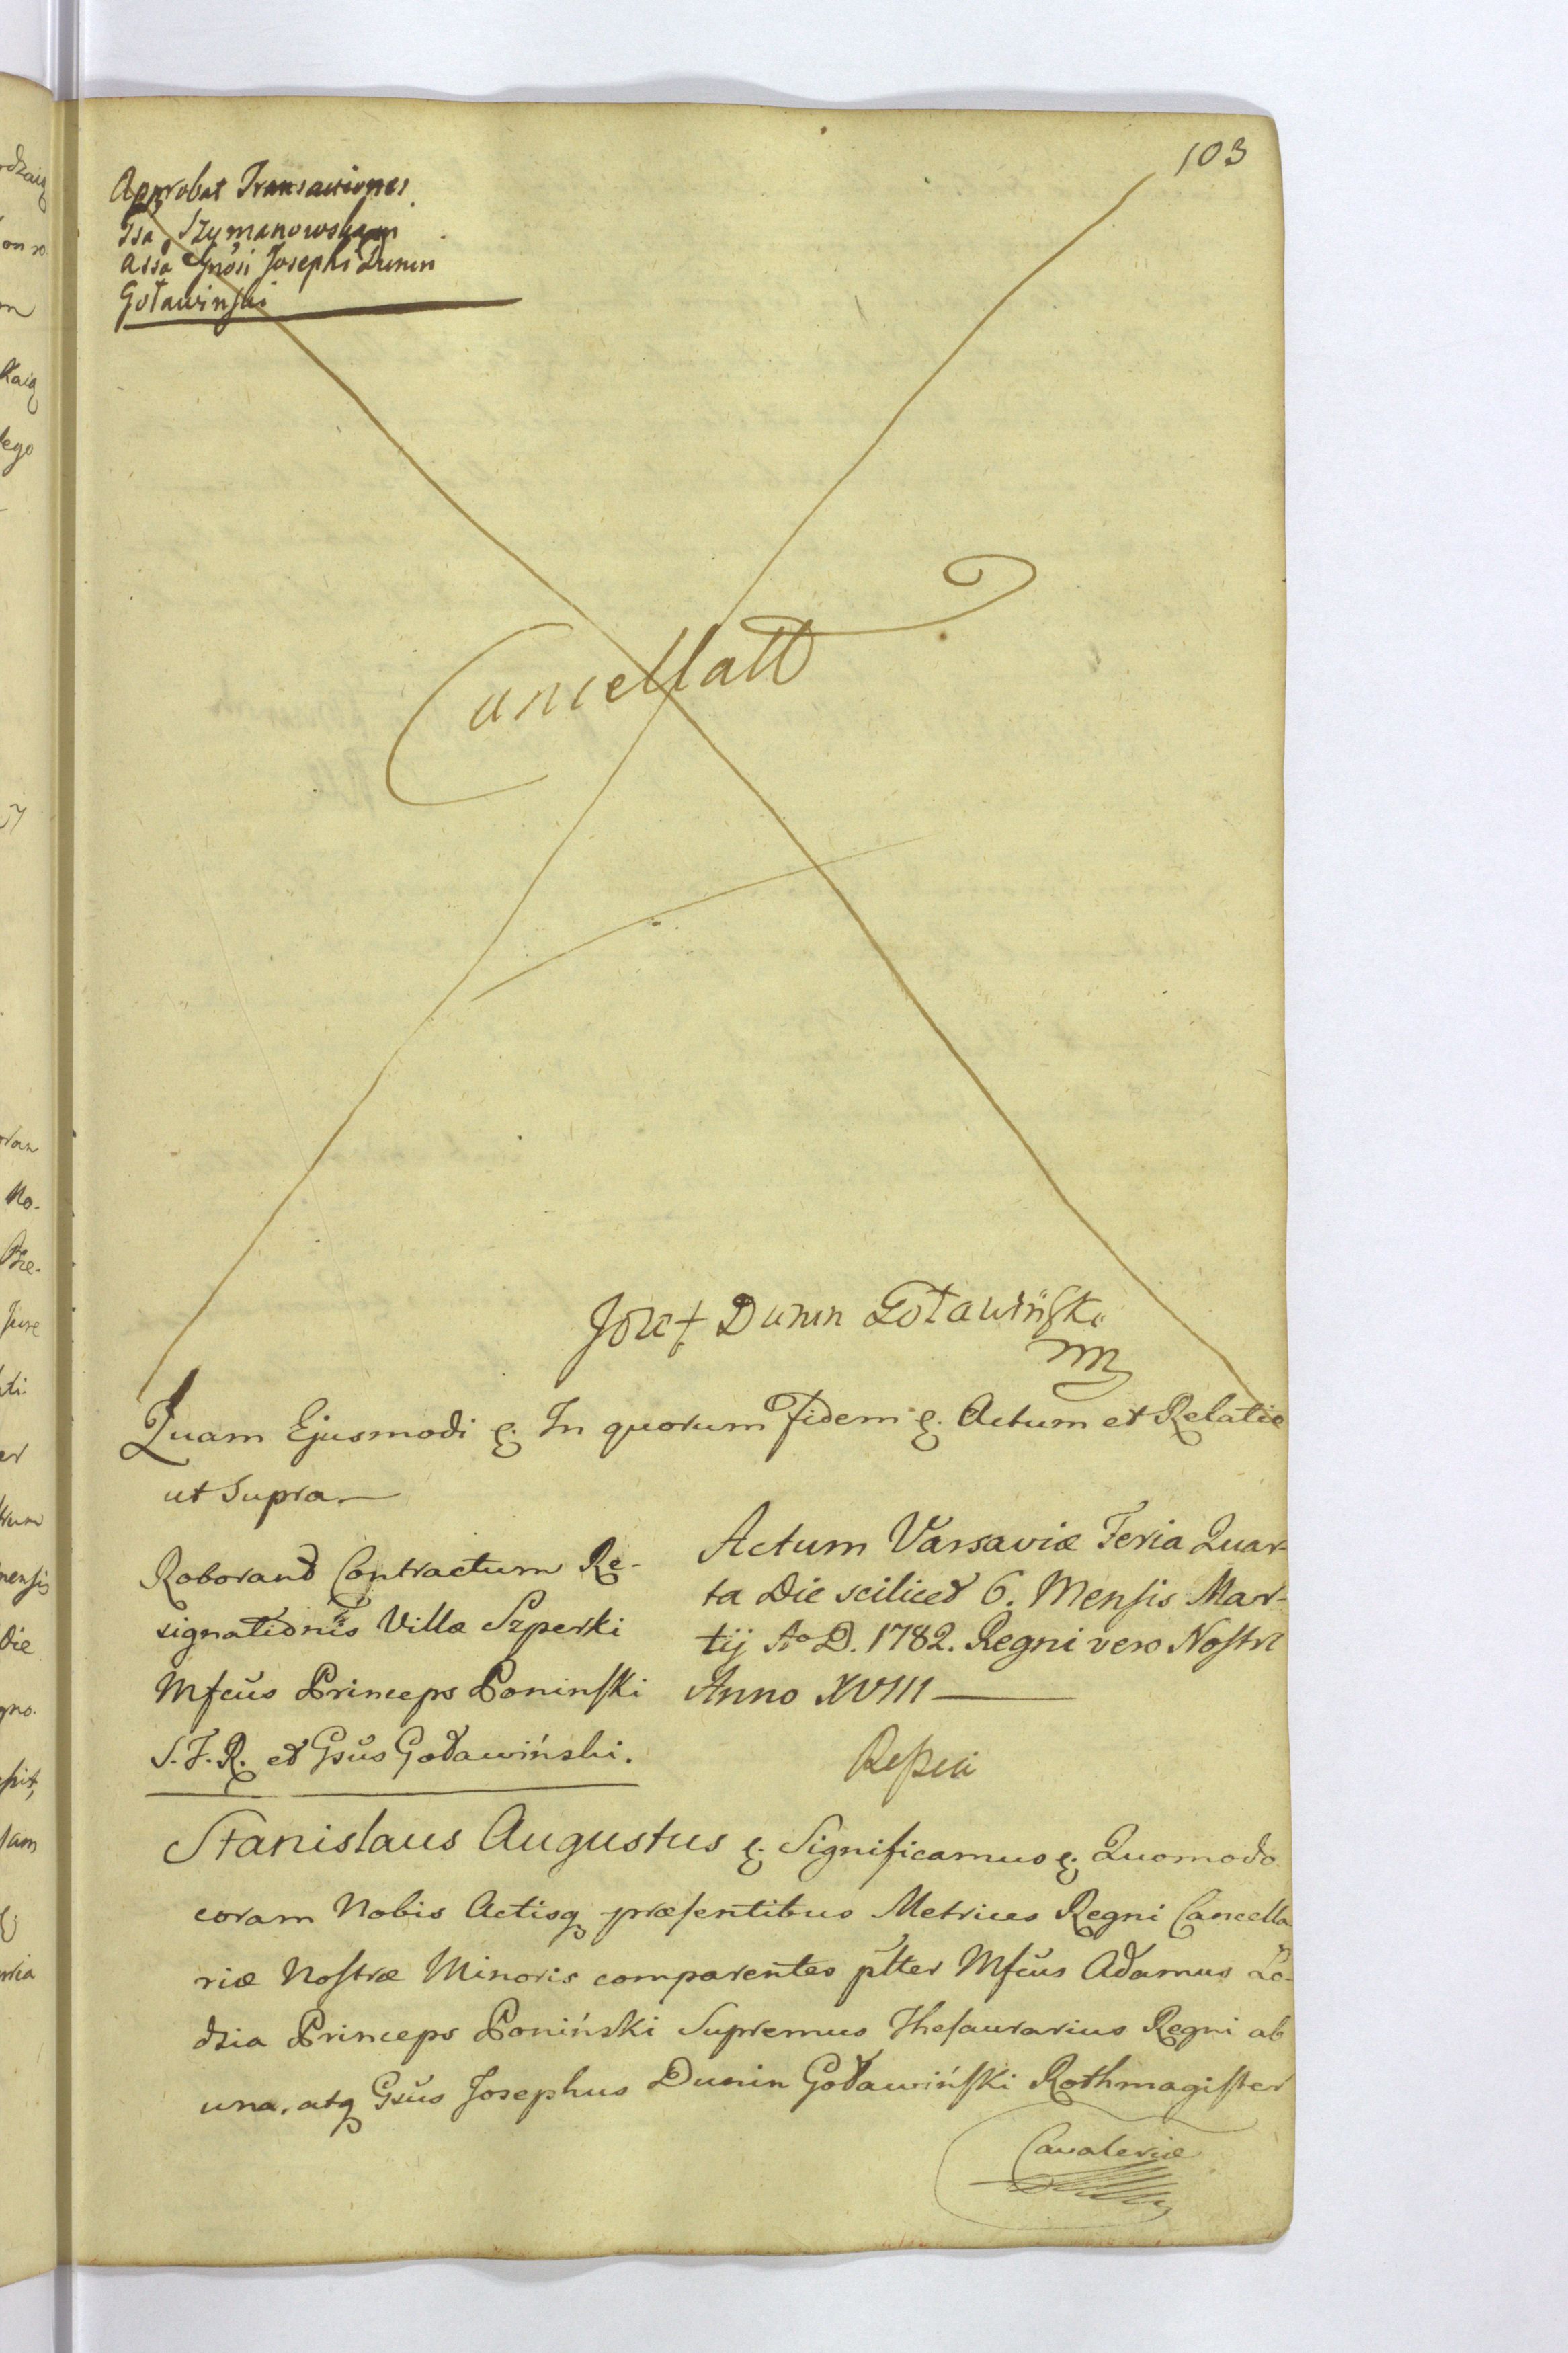 103
Approbat Transactiones
Szymanowskam
Gnosi Josephi Dunin
Goławinski
Cancellatt
Jozef Dunin Goławińsk
mp
Quam Ejusmodi &. In quorum Fidem &. Actum et Relatio
ut Supra.
Roborand Contractum Re-
signationis Villæ Szperki
Mfcŭs Princeps Poninski
S. T. R. et Gsŭs Goławiński.
Actum Varsaviæ Feria Quar-
ta Die scilicet 6. Mensis Mar-
tij Aº D. 1782. Regni vero Nostri
Anno XVIII
Stanislaus Augustus &. Significamus &. Quomodo
coram Nobis Actisq præsentibus Metrices Regni Cancella
riæ Nostræ Minoris comparentes pltter Mfcŭs Adamus Lo-
dzia Princeps Poniński Supremus Thesaurarius Regni ab
una, atq Gsŭs Josephus Dunin Goławiński Rothmagister
Cavaleriæ